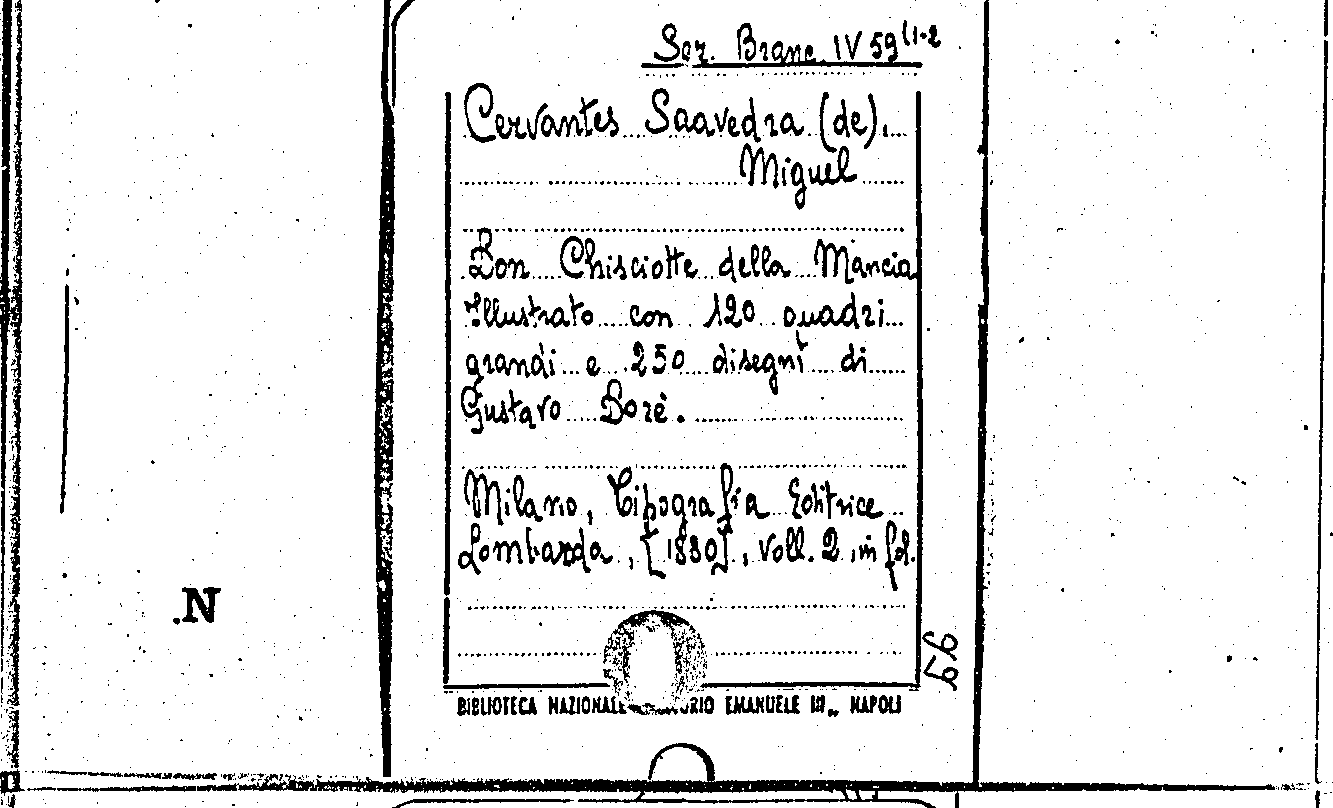 Sez. Branc. IV 59 (1-2
Cervantes Saavedra (de),
Miguel
Don Chisciotte della Mancia
Illustrato con 120 quadri
grandi e 250 disegni di
Gustavo Dorè.
Milano, Tipografia Editrice
Lombarda, [1880], voll. 2, in fol.
BIBLIOTECA NAZIONALE EMANUELE III„ NAPOLI
.N